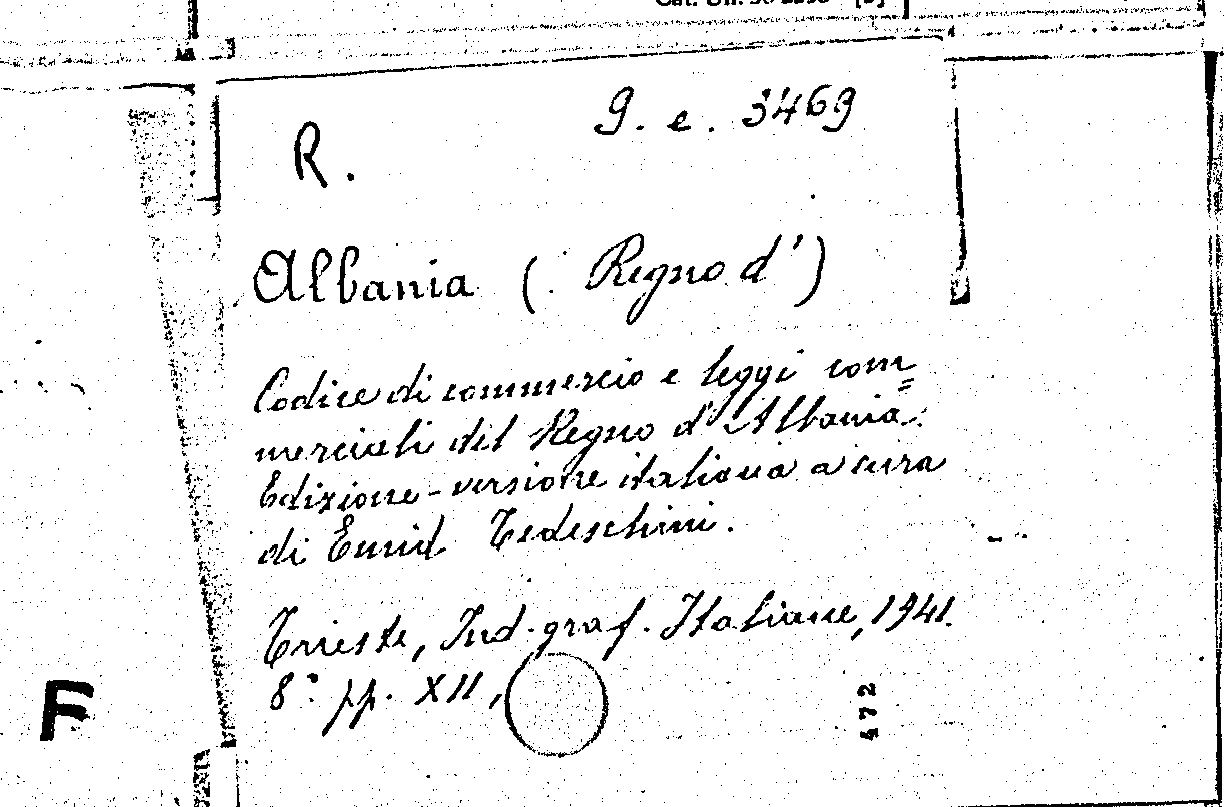 R.
9. e. 3469
Albania (Regno d')
Codice di commercio e leggi com=
merciali del Regno d'Albania.
Edizione-versione italiana a cura
di Enrid Tedeschini.
Trieste, Ind. graf. Italiane, 1941.
8° pp. XII,
472
F